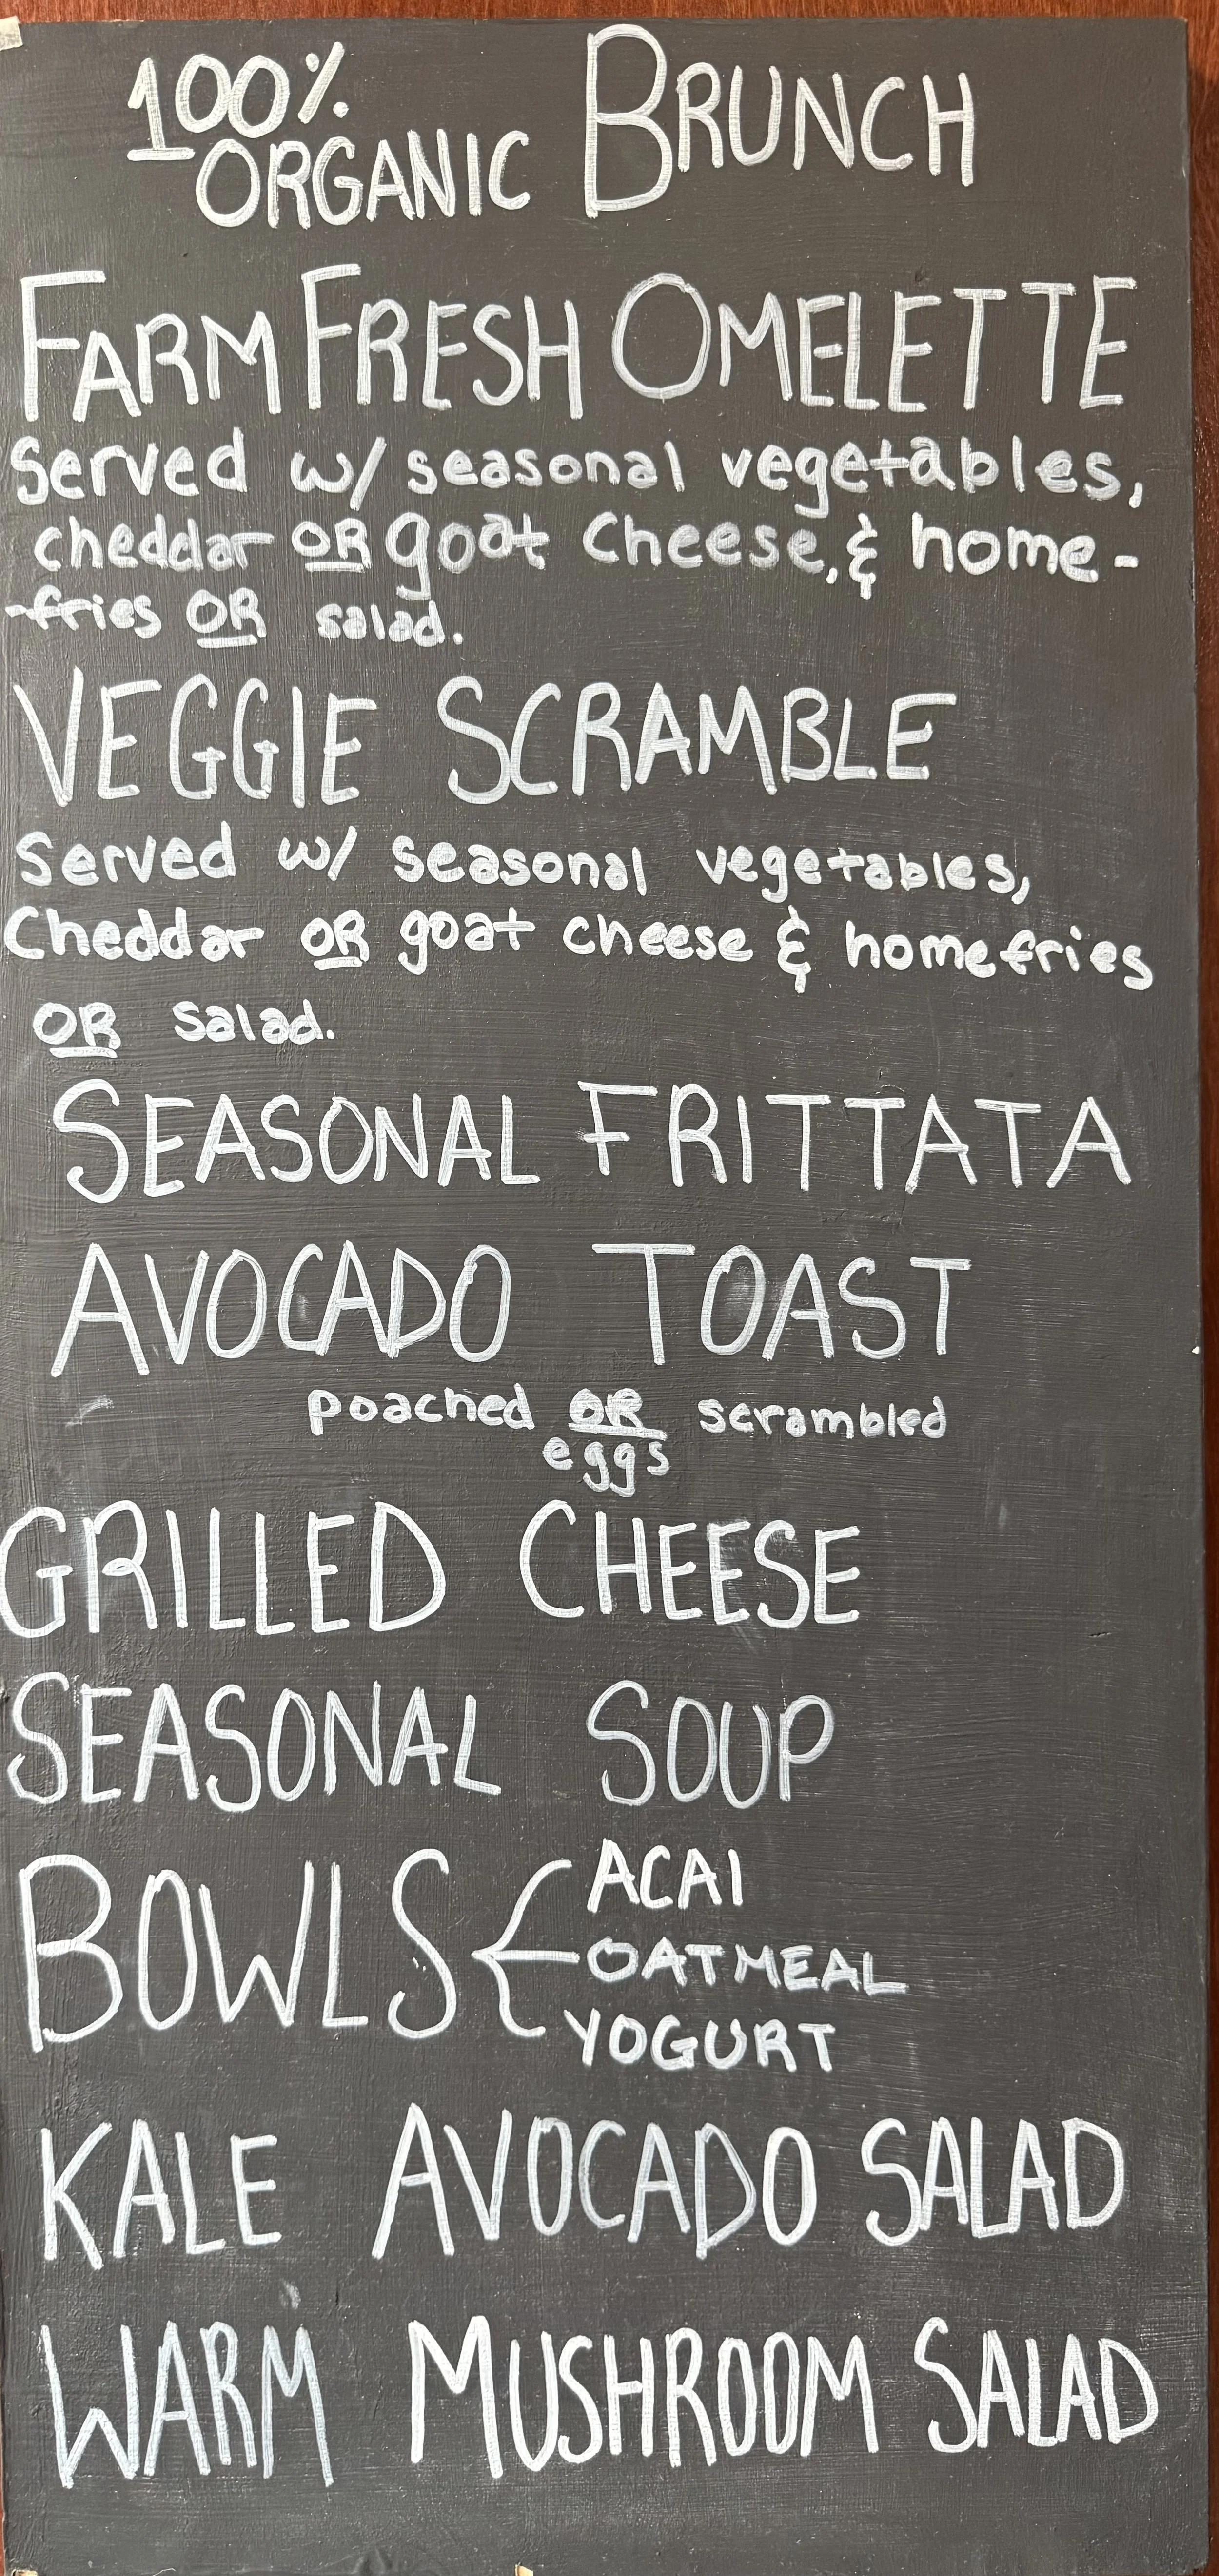 100% ORGANIC BRUNCH
FARM FRESH OMELETTE
Served w/ seasonal vegetables,
cheddar OR goat cheese, & home-
-fries OR salad.
VEGGIE SCRAMBLE
Served w/ seasonal vegetables,
Cheddar OR goat cheese & homefries
OR salad.
SEASONAL FRITTATA
AVOCADO TOAST
poached OR scrambled
eggs
GRILLED CHEESE
SEASONAL SOUP
BOWLS
ACAI
OATMEAL
YOGURT
KALE AVOCADO SALAD
WARM MUSHROOM SALAD